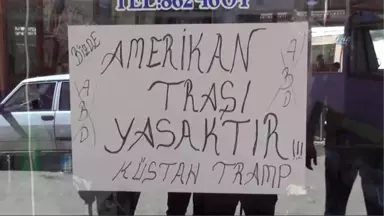 TEL:862 1604
BİZDE
AMERİKAN
TRAŞI
YASAKTIR!!!
KÜSTAH TRAMP
ABD
ABD